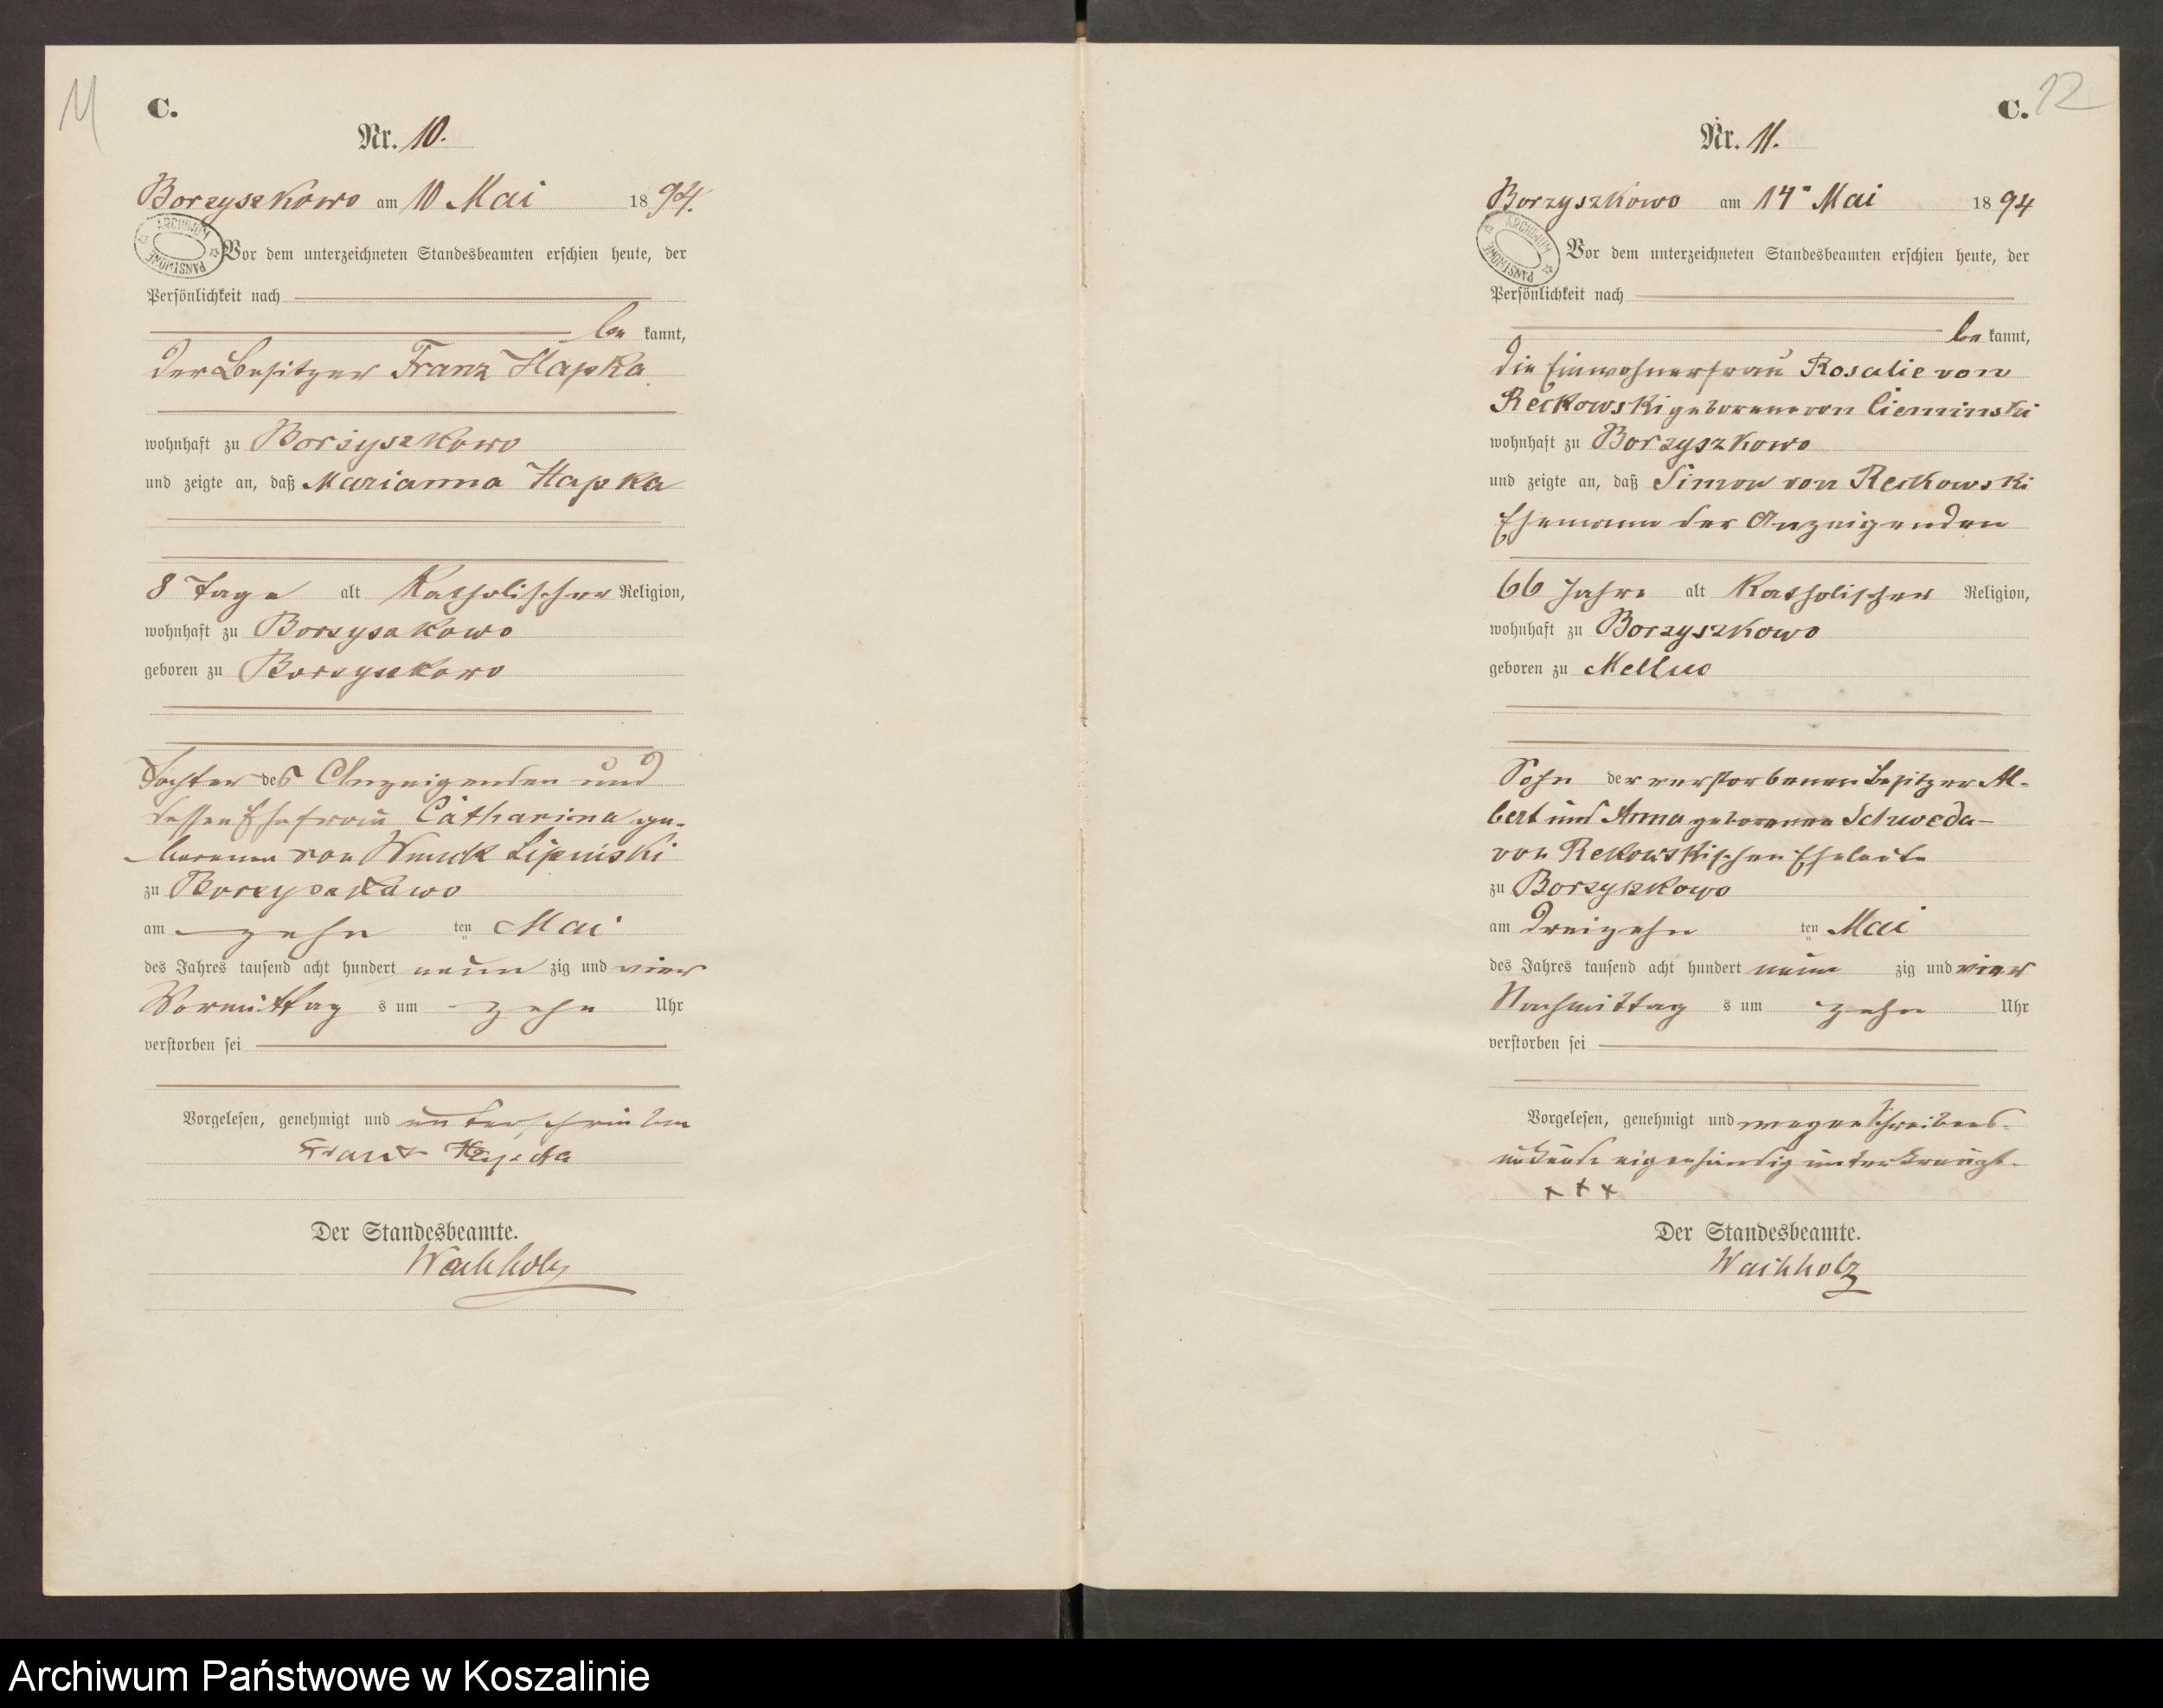 11
C.
Nr. 10.
Borzyszkowo am 10 Mai 1894.
ARCHIWUM PAŃSTWOWE
Vor dem unterzeichneten Standesbeamten erschien heute, der
Persönlichkeit nach
be kannt,
der Besitzer Franz Hapka
wohnhaft zu Borzyszkowo
und zeigte an, daß Marianna Hapka
8 Tage alt Katholischer Religion,
wohnhaft zu Borzyszkowo
geboren zu Borzyszkowo
Tochter des Anzeigenden und
dessen Ehefrau Catharina ge-
borenen von Lipinski
zu Borzyszkowo
am zehn ten Mai
des Jahres tausend acht hundert neun zig und vier
Vormittag s um zehn Uhr
verstorben sei
Vorgelesen, genehmigt und unterschrieben
Franz Hapka
Der Standesbeamte.
Wachholz
12
C.
Nr. 11.
Borzyszkowo am 14 Mai 1894
ARCHIWUM PAŃSTWOWE
Vor dem unterzeichneten Standesbeamten erschien heute, der
Persönlichkeit nach
be kannt,
die Einwohnerfrau Rosalie von
Reckowski geborene von Cieminski
wohnhaft zu Borzyszkowo
und zeigte an, daß Simon von Reckowski
Ehemann der Anzeigenden
66 Jahre alt Katholischer Religion,
wohnhaft zu Borzyszkowo
geboren zu Mellno
Sohn der verstorbenen Besitzer Al-
bert und Anna geborenen Schweda-
von Rekowskischen Eheleute
zu Borzyszkowo
am dreizehn ten Mai
des Jahres tausend acht hundert neun zig und vier
Nachmittag s um zehn Uhr
verstorben sei
Vorgelesen, genehmigt und wegen Schreibens-
unkunde eigenhändig unterkreuzt.
+ + +
Der Standesbeamte.
Wachholz
Archiwum Państwowe w Koszalinie